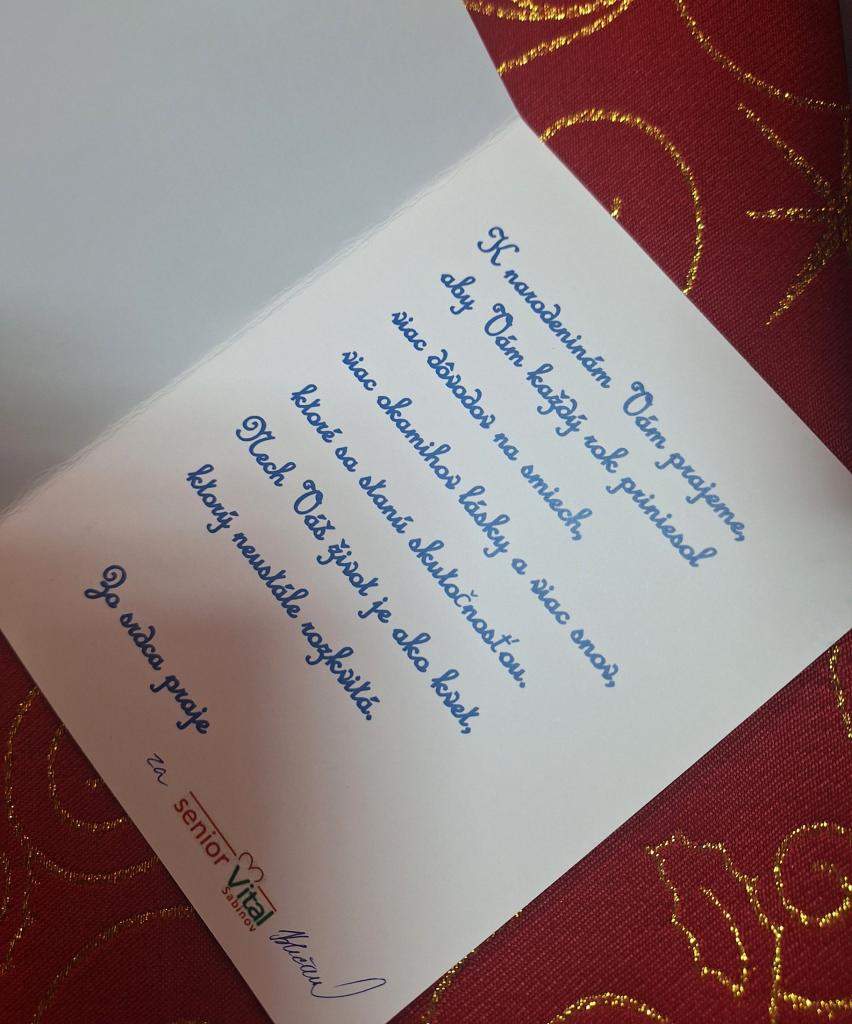 K narodeninám Vám prajeme,
aby Vám každý rok priniesol
viac dôvodov na smiech,
viac okamihov lásky a viac snov,
ktoré sa stanú skutočnosťou.
Nech Váš život je ako kvet,
ktorý neustále rozkvitá.
Zo srdca praje
za
senior Vital
Sabinov